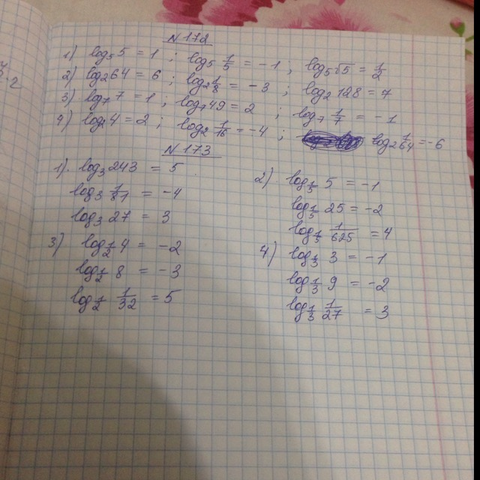 N 172
1) log₅5 = 1 ; log₅ 1/5 = -1 ; log₅√5 = 1/2
2) log₂64 = 6 ; log₂ 1/8 = -3 ; log₂128 = 7
3) log₇7 = 1 ; log₇49 = 2 ; log₇ 1/7 = -1
4) log₂4 = 2 ; log₂ 1/16 = -4 ; log₂ 1/64 = -6
N 173
1) log₃243 = 5
log₃ 1/81 = -4
log₃27 = 3
3) log 1/2 4 = -2
log 1/2 8 = -3
log 1/2 1/32 = 5
2) log 1/5 5 = -1
log 1/5 25 = -2
log 1/5 1/625 = 4
4) log 1/3 3 = -1
log 1/3 9 = -2
log 1/3 1/27 = 3